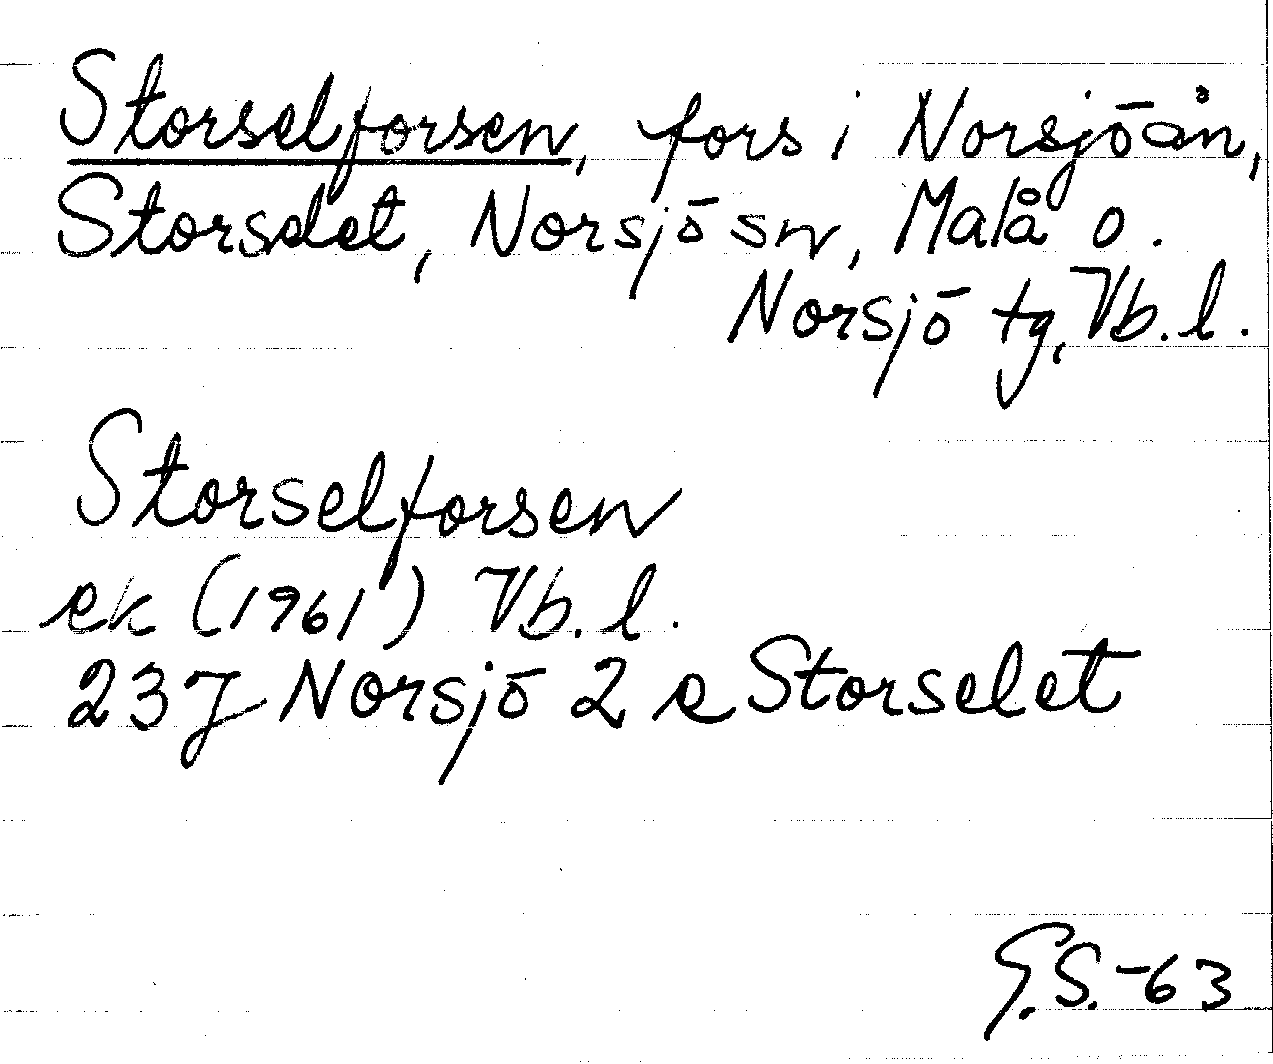 Storselforsen, fors i Norsjöån,
Storselet, Norsjö sn, Malå o.
Norsjö tg, Vb. l.
Storselforsen
ek (1961) Vb. l.
23 J Norsjö 2 e Storselet
G.S.-63